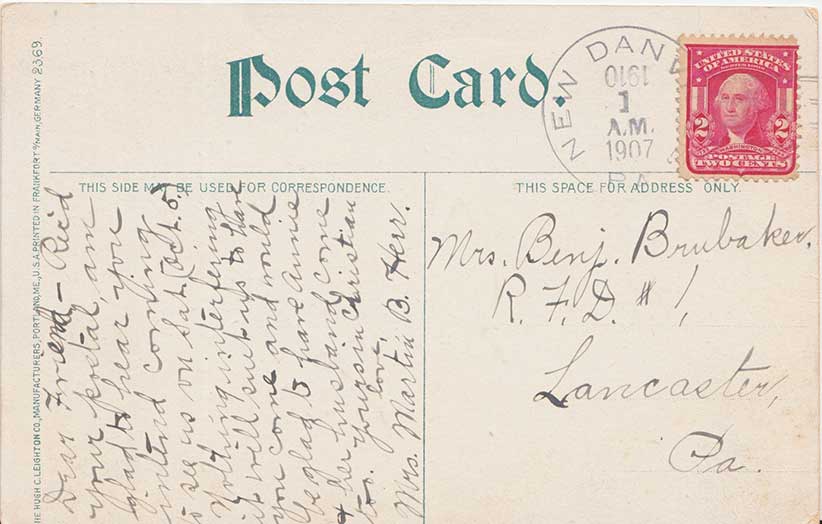 Post Card.
NEW DANV
1
A.M.
1907
PA
UNITED STATES
OF AMERICA
2 2
WASHINGTON
POSTAGE
TWO CENTS
THIS SIDE MAY BE USED FOR CORRESPONDENCE.
THIS SPACE FOR ADDRESS ONLY.
HE HUGH C. LEIGHTON CO., MANUFACTURERS, PORTLAND, ME., U.S.A. PRINTED IN FRANKFORT o/MAIN, GERMANY 2369.
Dear Friend - Rec'd
your postal, am
glad to hear you
intend coming
to see us on Sat. Oct. 5.
Nothing interfering
it will suit us to have
you come and would
be glad to have Annie
& her husband come
too. Yours in Christian
love,
Mrs. Martin B. Herr.
Mrs. Benj. Brubaker,
R. F. D. # 1,
Lancaster,
Pa.